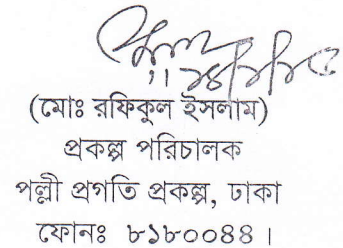 (মোঃ রফিকুল ইসলাম)
প্রকল্প পরিচালক
পল্লী প্রগতি প্রকল্প, ঢাকা
ফোনঃ ৮১৮০০৪৪ ।